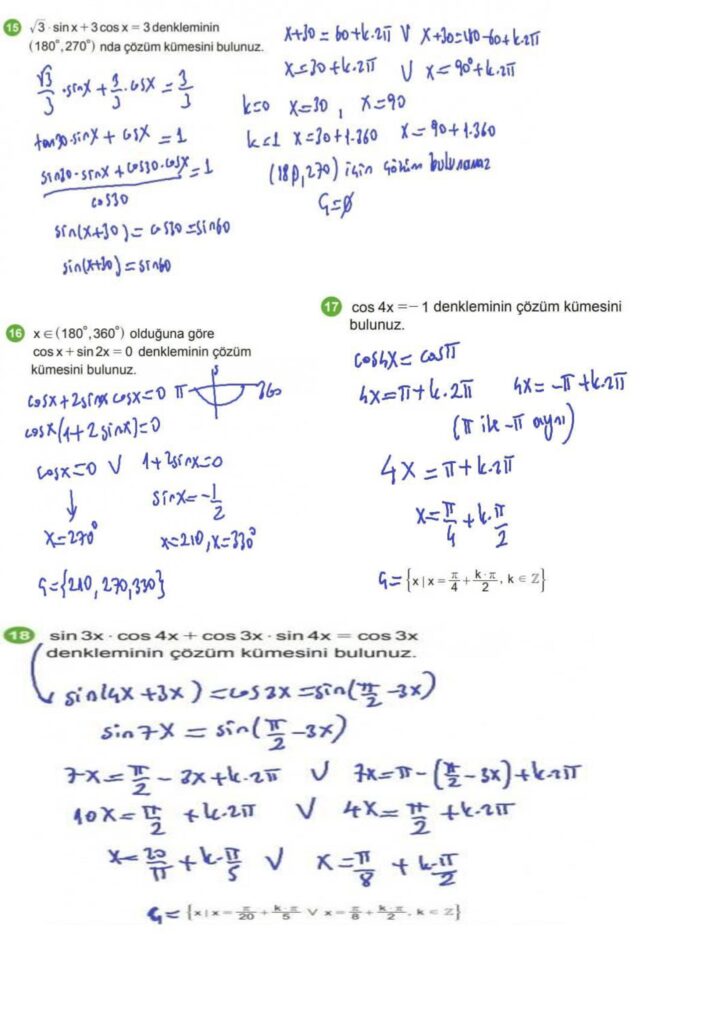 15 √3 · sin x + 3 cos x = 3 denkleminin
(180°, 270°) nda çözüm kümesini bulunuz.
√3/3 · sinx + 3/3 · cosx = 3/3
tan30 · sinx + cosx = 1
sin30 · sinx + cos30 · cosx / cos30 = 1
sin(x+30) = cos30 = sin60
sin(x+30) = sin60
x+30 = 60 + k.2π V x+30 = 180-60+k.2π
x = 30 + k.2π V x = 90° + k.2π
k=0 x=30 , x=90
k=1 x=30+1.360 x=90+1.360
(180,270) için çözüm bulunamaz
Ç=∅
16 x ∈ (180°, 360°) olduğuna göre
cos x + sin 2x = 0 denkleminin çözüm
kümesini bulunuz.
cosx + 2sinx cosx = 0 π 360
cosx(1+2sinx)=0
cosx=0 V 1+2sinx=0
↓ sinx = -1/2
x=270° x=210, x=330°
Ç={210, 270, 330}
17 cos 4x = − 1 denkleminin çözüm kümesini
bulunuz.
cos4x = cosπ
4x = π + k.2π 4x = -π + k.2π
(π ile -π aynı)
4x = π + k.2π
x = π/4 + k.π/2
Ç= {x | x = π/4 + k·π/2 , k ∈ Z}
18 sin 3x · cos 4x + cos 3x · sin 4x = cos 3x
denkleminin çözüm kümesini bulunuz.
sin(4x + 3x) = cos3x = sin(π/2 - 3x)
sin7x = sin(π/2 - 3x)
7x = π/2 - 3x + k.2π V 7x = π - (π/2 - 3x) + k.2π
10x = π/2 + k.2π V 4x = π/2 + k.2π
x = 20/π + k.π/5 V x = π/8 + k.π/2
Ç= {x | x = π/20 + k·π/5 V x = π/8 + k·π/2 , k ∈ Z}